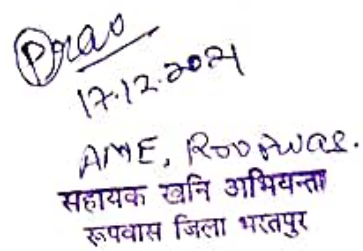 17.12.2021
AME, Roopwas.
सहायक खनि अभियन्ता
रूपवास जिला भरतपुर